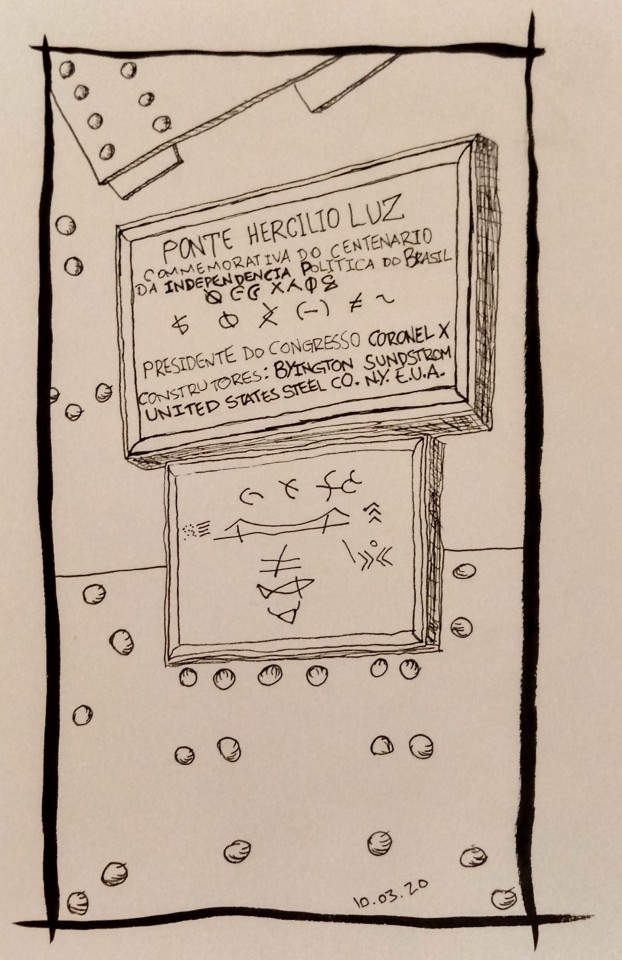 PONTE HERCILIO LUZ
COMMEMORATIVA DO CENTENARIO
DA INDEPENDENCIA POLITICA DO BRASIL
PRESIDENTE DO CONGRESSO CORONEL X
CONSTRUTORES: BYINGTON SUNDSTROM
UNITED STATES STEEL CO. N.Y. E.U.A.
10.03.20